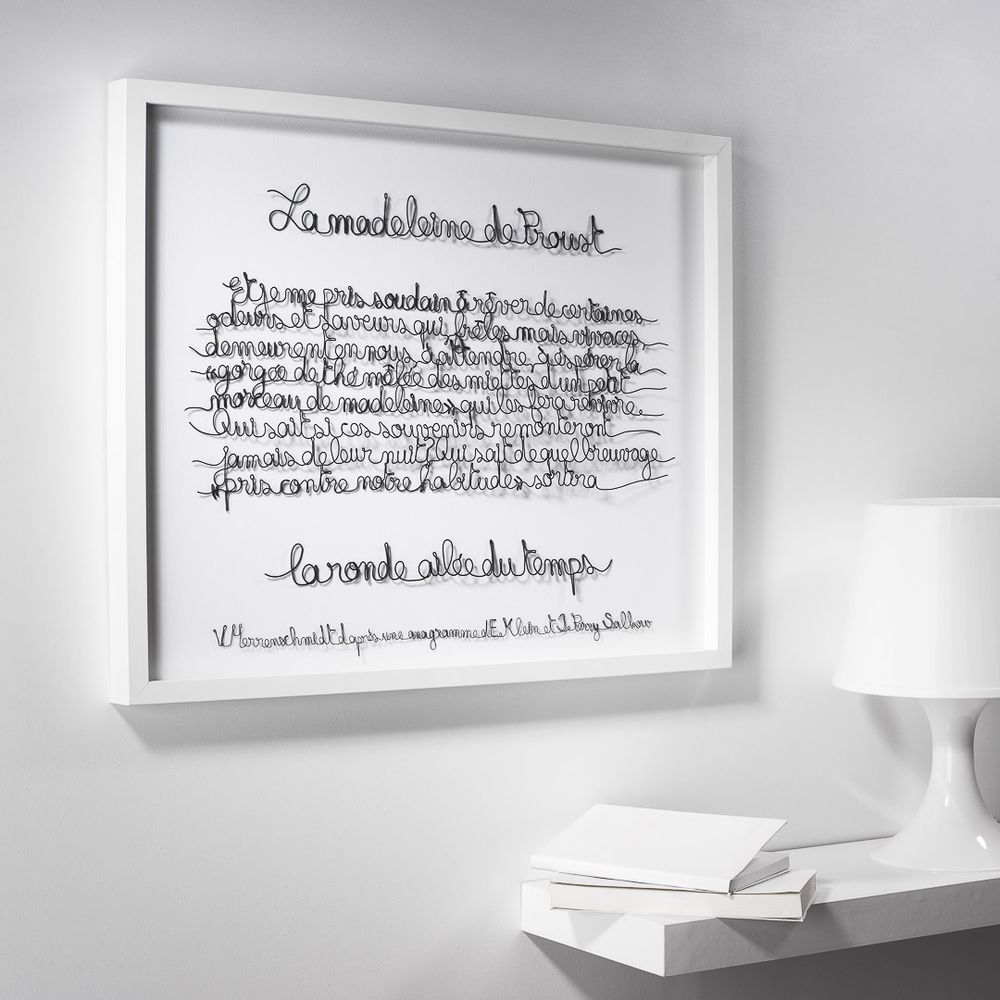 La madeleine de Proust
Et je me pris soudain à rêver de certaines
odeurs et saveurs qui, frêles mais vivaces,
demeurent en nous à attendre, à espérer, la
«gorgée de thé mêlée des miettes d'un petit
morceau de madeleine» qui les fera revivre.
Qui sait si ces souvenirs remonteront
jamais de leur nuit? Qui sait de quel breuvage
«pris contre notre habitude» sortira
la ronde ailée du temps
V. Herrenschmidt d'après une anagramme d'E. Klein et J. Perry Salkow